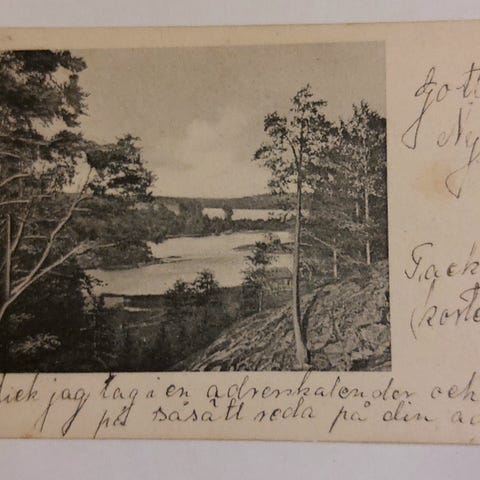 Gott
Ny
Tack
(korte
fick jag tag i en adresskalender och
på så sätt reda på din ad